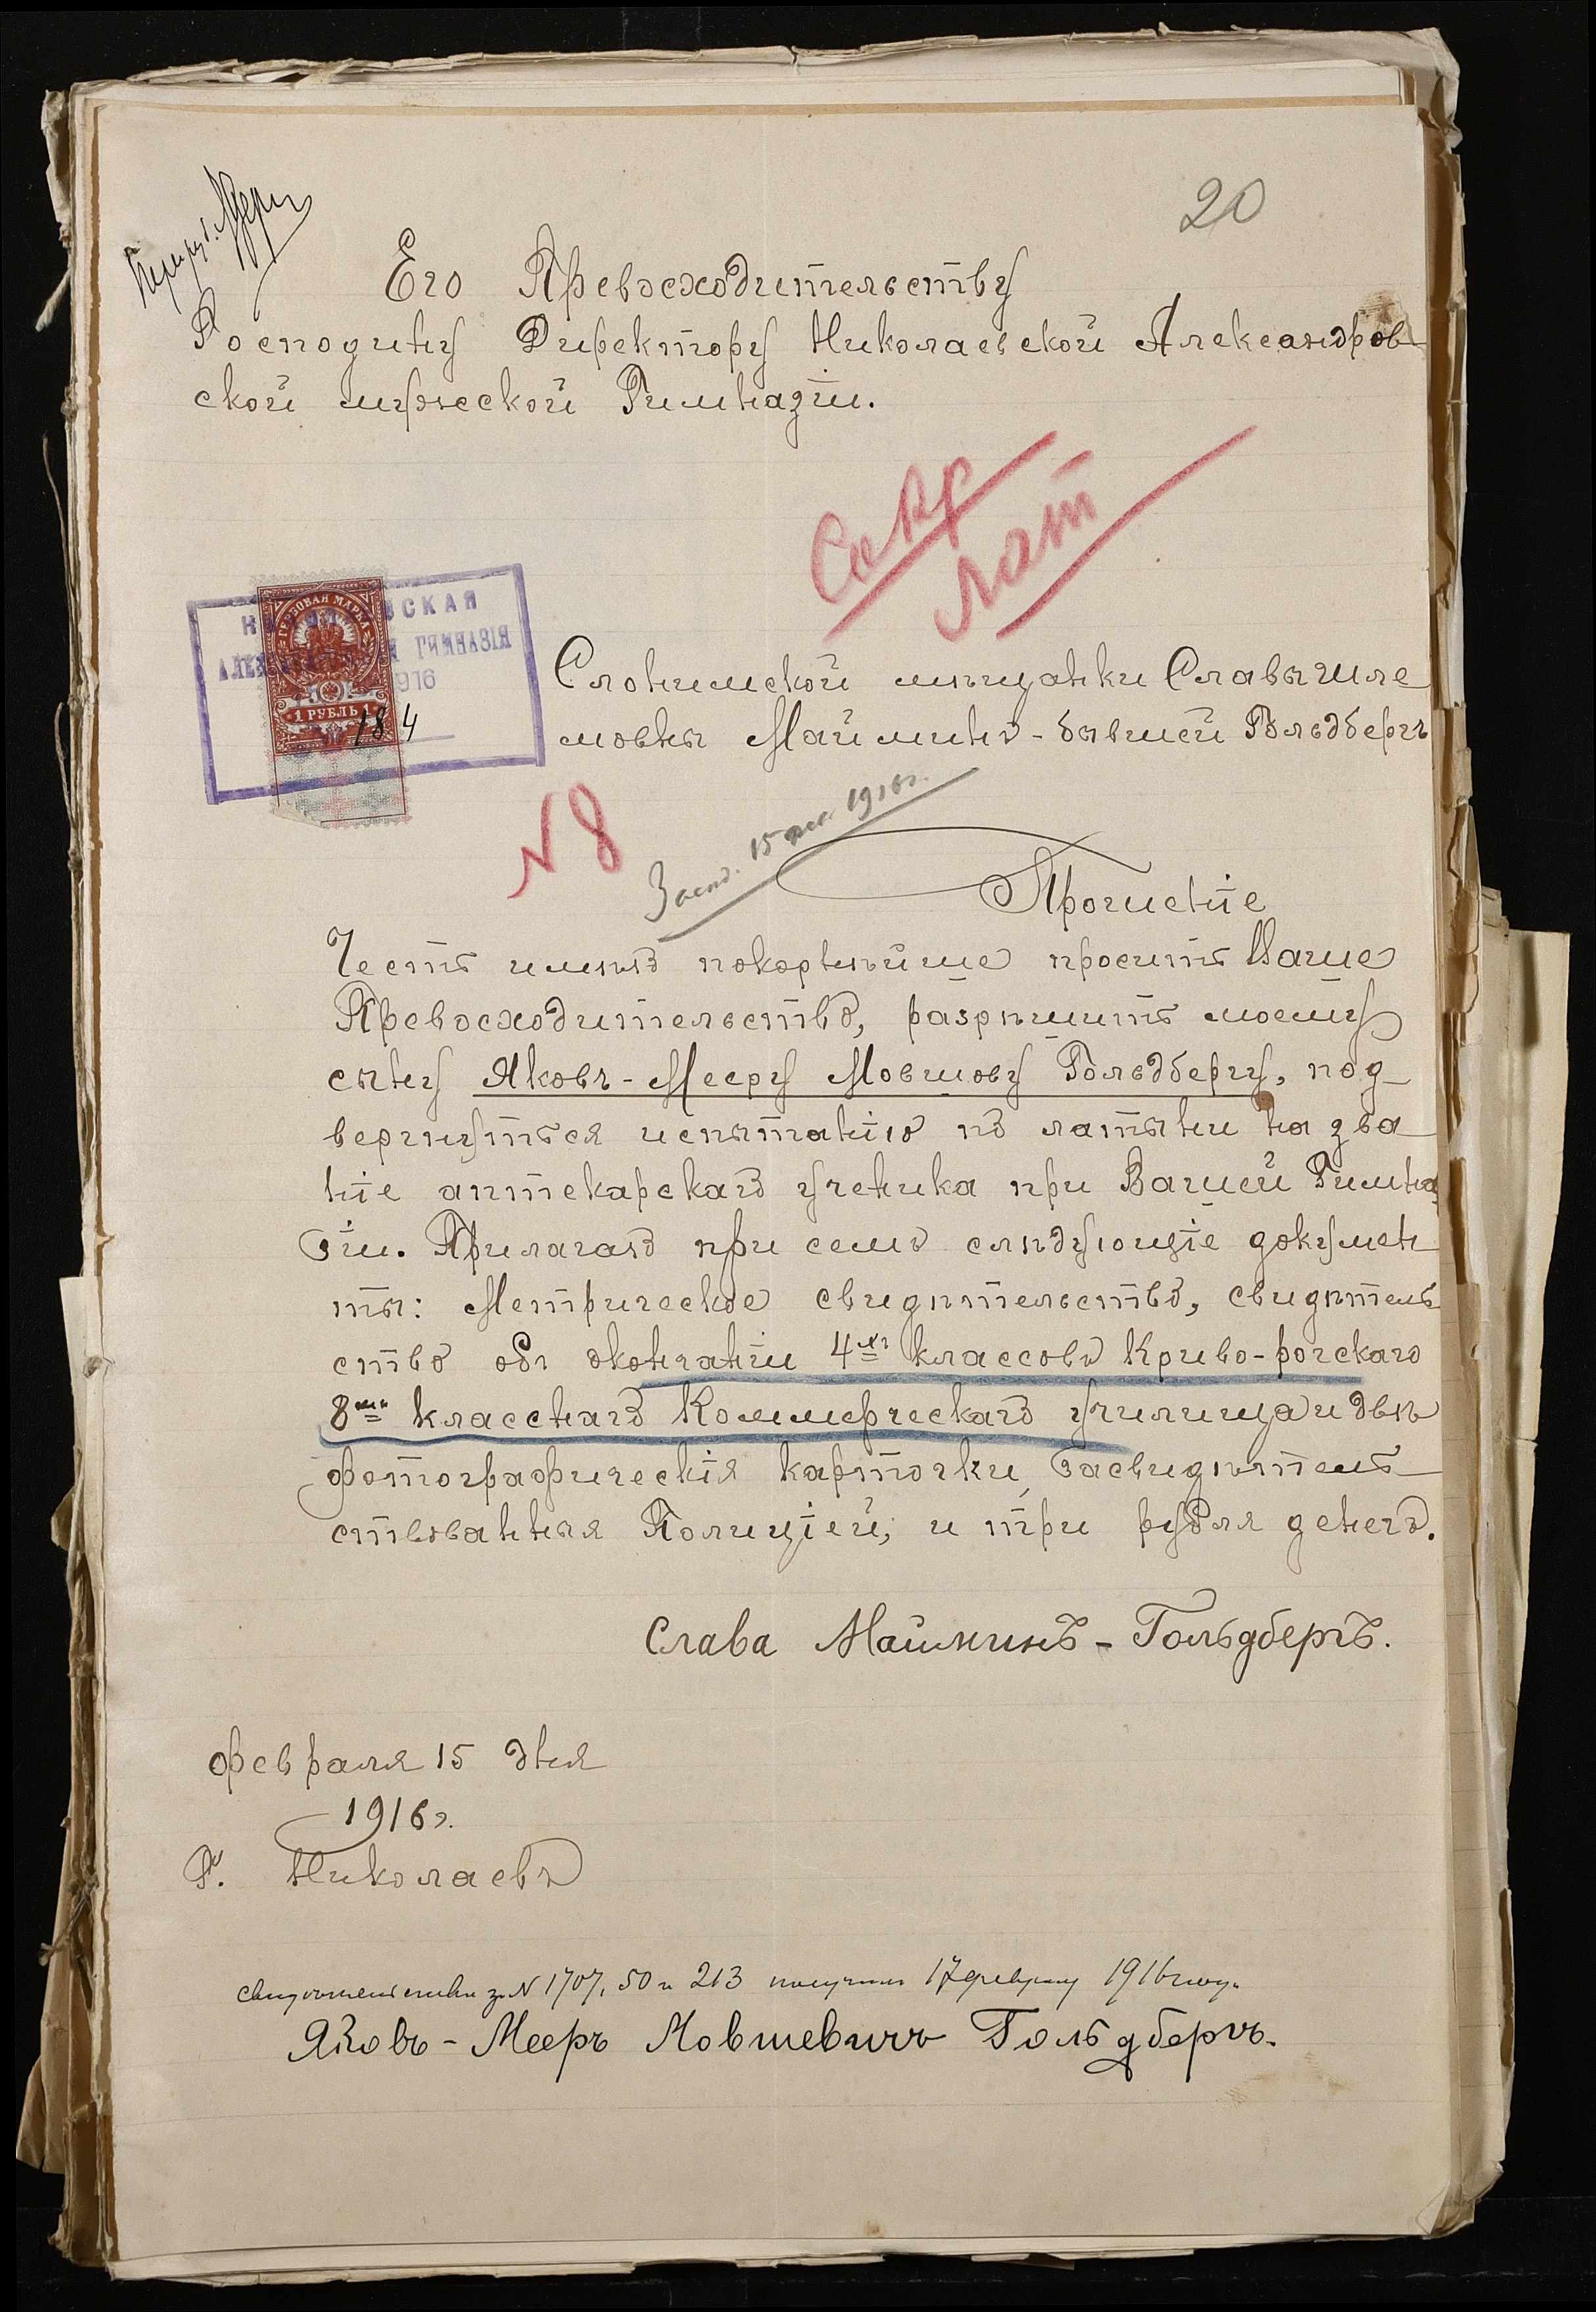 20
Его Превосходительству
Господину Директору Николаевской Александров
ской мужеской Гимназіи.
Лат
ГЕРБОВАЯ МАРКА
ГИМНАЗІЯ
1916
1 РУБЛЬ 1
184
Слонимской мѣщанки Славы Шле
мовны Майминъ - бывшей Гольдбергъ
N 8
15 1916 г.
Прошеніе
Честь имѣю покорнѣйше просить Ваше
Превосходительство, разрѣшить моему
сыну Яковъ-Мееру Мовшову Гольдбергу, под
вергнуться испытанію по латыни на зва
ніе аптекарскаго ученика при Вашей Гимна
зіи. Прилагаю при семъ слѣдующіе докумен
ты: Метрическое свидѣтельство, свидѣтель
ство объ окончаніи 4хъ классовъ Криво-рогскаго
8ми класснаго Коммерческаго училища и двѣ
фотографическія карточки, засвидѣтель
ствованныя Полиціей, и три рубля денегъ.
Слава Маймин​ъ - Гольдбергъ.
Февраля 15 дня
1916 г.
Г. Николаевъ
свидѣтельства за N 1707, 50 и 213 получилъ 17 февраля 1916 года
Яковъ - Мееръ Мовшевичъ Гольдбергъ.